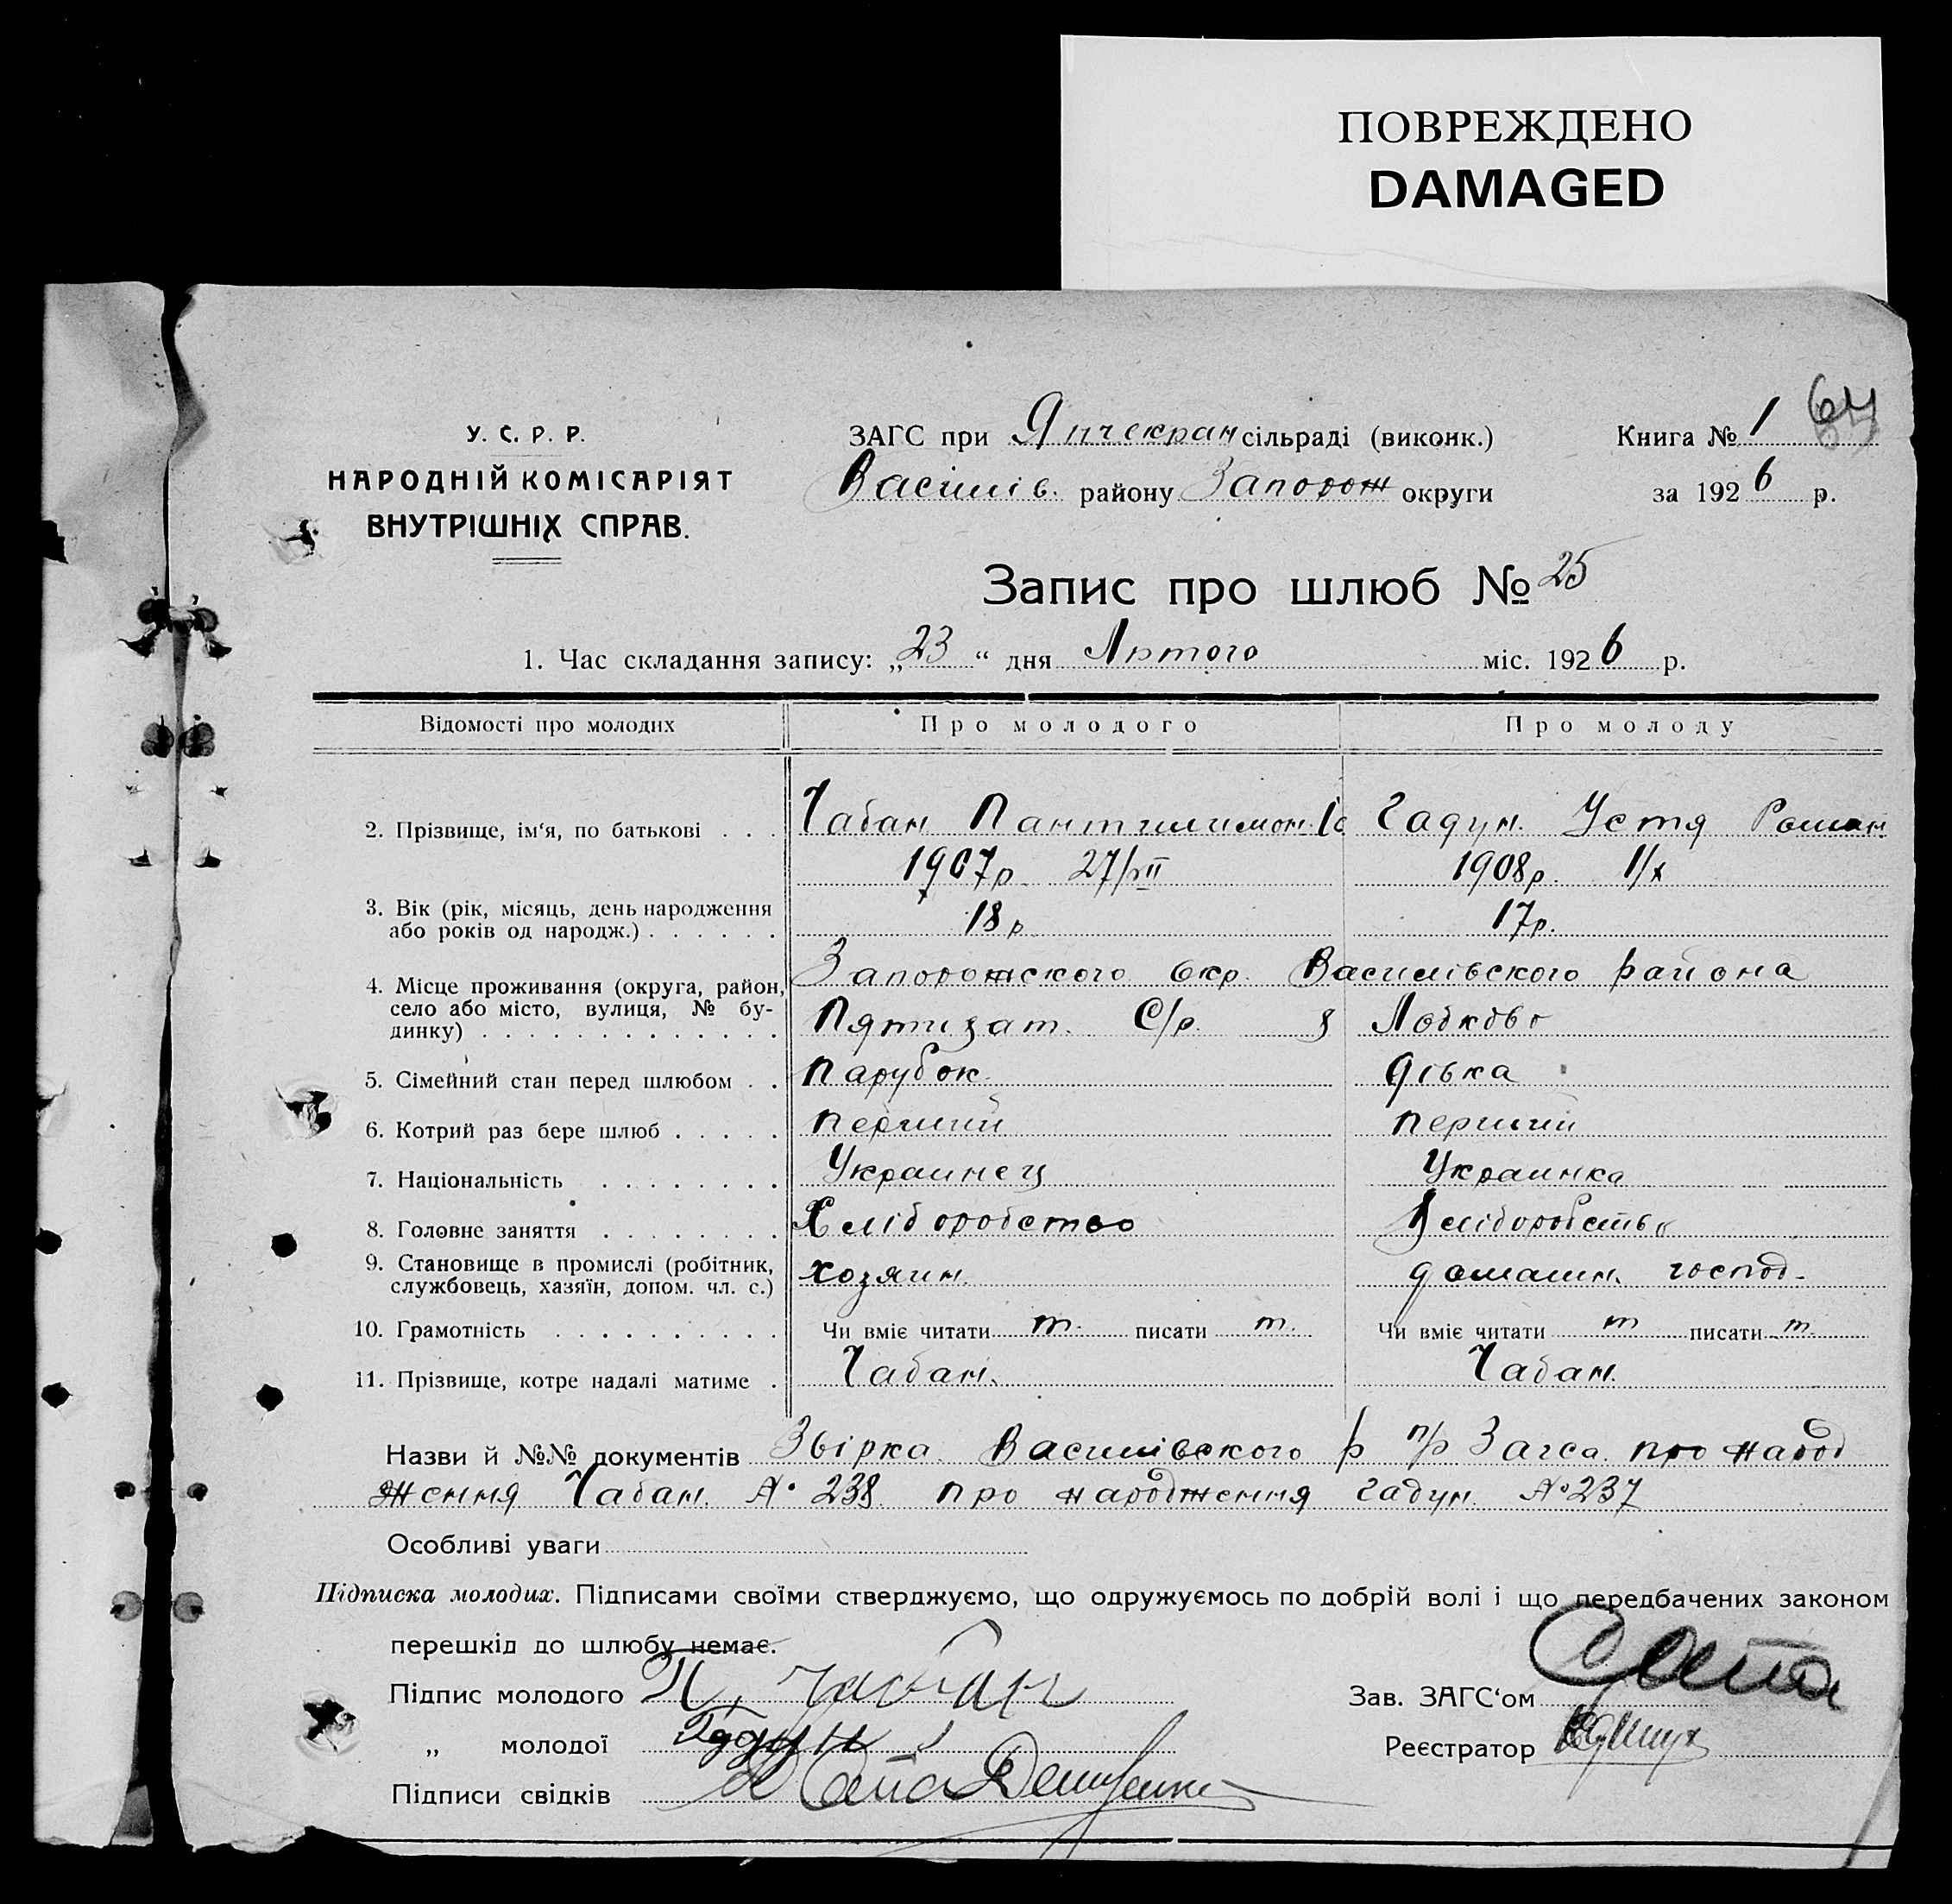 ПОВРЕЖДЕНО
DAMAGED
У. С. Р. Р.
НАРОДНІЙ КОМІСАРІЯТ
ВНУТРІШНІХ СПРАВ.
ЗАГС при Янчекран сільраді (виконк.)
Василів. району Запорож округи
Книга № 1
за 1926 р.
Запис про шлюб № 25
1. Час складання запису: „23“ дня Лютого міс. 1926 р.
Відомості про молодих Про молодого Про молоду
2. Прізвище, ім‘я, по батькові . . . Чабан Пантилимон Гадун. Устя Роман
1907р 27/VII 1908р. 1/X
3. Вік (рік, місяць, день народження
або років од народж.) . . . . . . 18р 17р.
Запорожского Окр. Василівского района
4. Місце проживання (округа, район,
село або місто, вулиця, № бу-
динку) . . . . . . . . . . . . . Пятихат. С/р. Лобково
5. Сімейний стан перед шлюбом . . Парубок. дівка
6. Котрий раз бере шлюб . . . . . перший перший
7. Національність . . . . . . . . Украинец Украинка
8. Головне заняття . . . . . . . . Хліборобство Хліборобство
9. Становище в промислі (робітник,
службовець, хазяїн, допом. чл. с.) хозяин. домашн. господ-
10. Грамотність . . . . . . . . . . Чи вміє читати т. писати т. Чи вміє читати т писати т.
11. Прізвище, котре надалі матиме . Чабан. Чабан.
Назви й №№ документів Звірка Василівского р п/р Загса про народ
ження Чабан. № 238 про народження Гадун № 237
Особливі уваги
Підписка молодих. Підписами своїми стверджуємо, що одружуємось по добрій волі і що передбачених законом
перешкід до шлюбу немає.
Підпис молодого П. Чабан
Зав. ЗАГС‘ом
„ молодої Гадун
Реєстратор
Підписи свідків